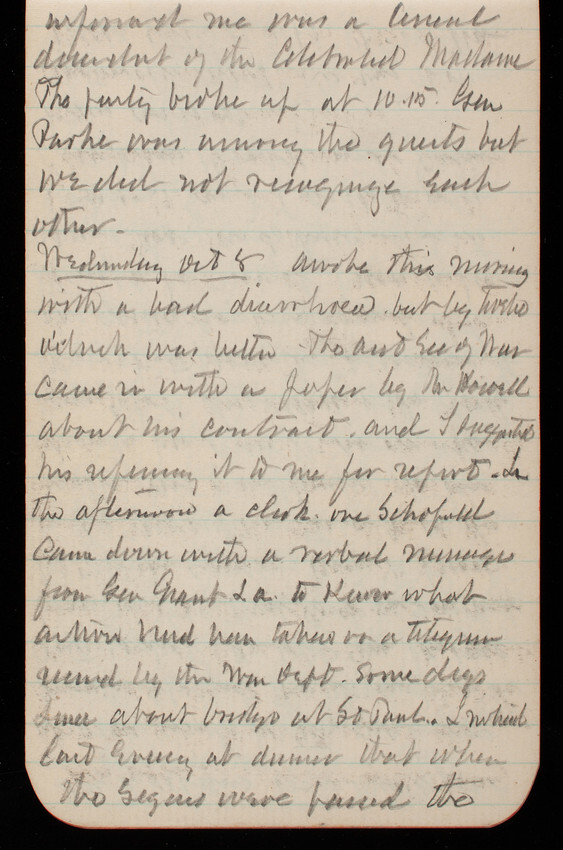 informed me was a lineal
descendent of the Celebrated Madame
The party broke up at 10.15. Gen
Parke was among the guests but
we did not recognize each
other.
Wednesday Oct 8 awoke this morning
with a bad diarrhoea. but by twelve
o'clock was better The asst Sec of War
came in with a paper by Mr Howell
about his contract. and I suggested
his refering it to me for report. In
the afternoon a clerk. one Schofield
Came down with a verbal message
from Gen Grant to Know what
action had been taken on a telegram
received by the War Dept. Some days
since about bridge at St Paul. I noticed
last Evening at dinner that when
the Segars were passed the